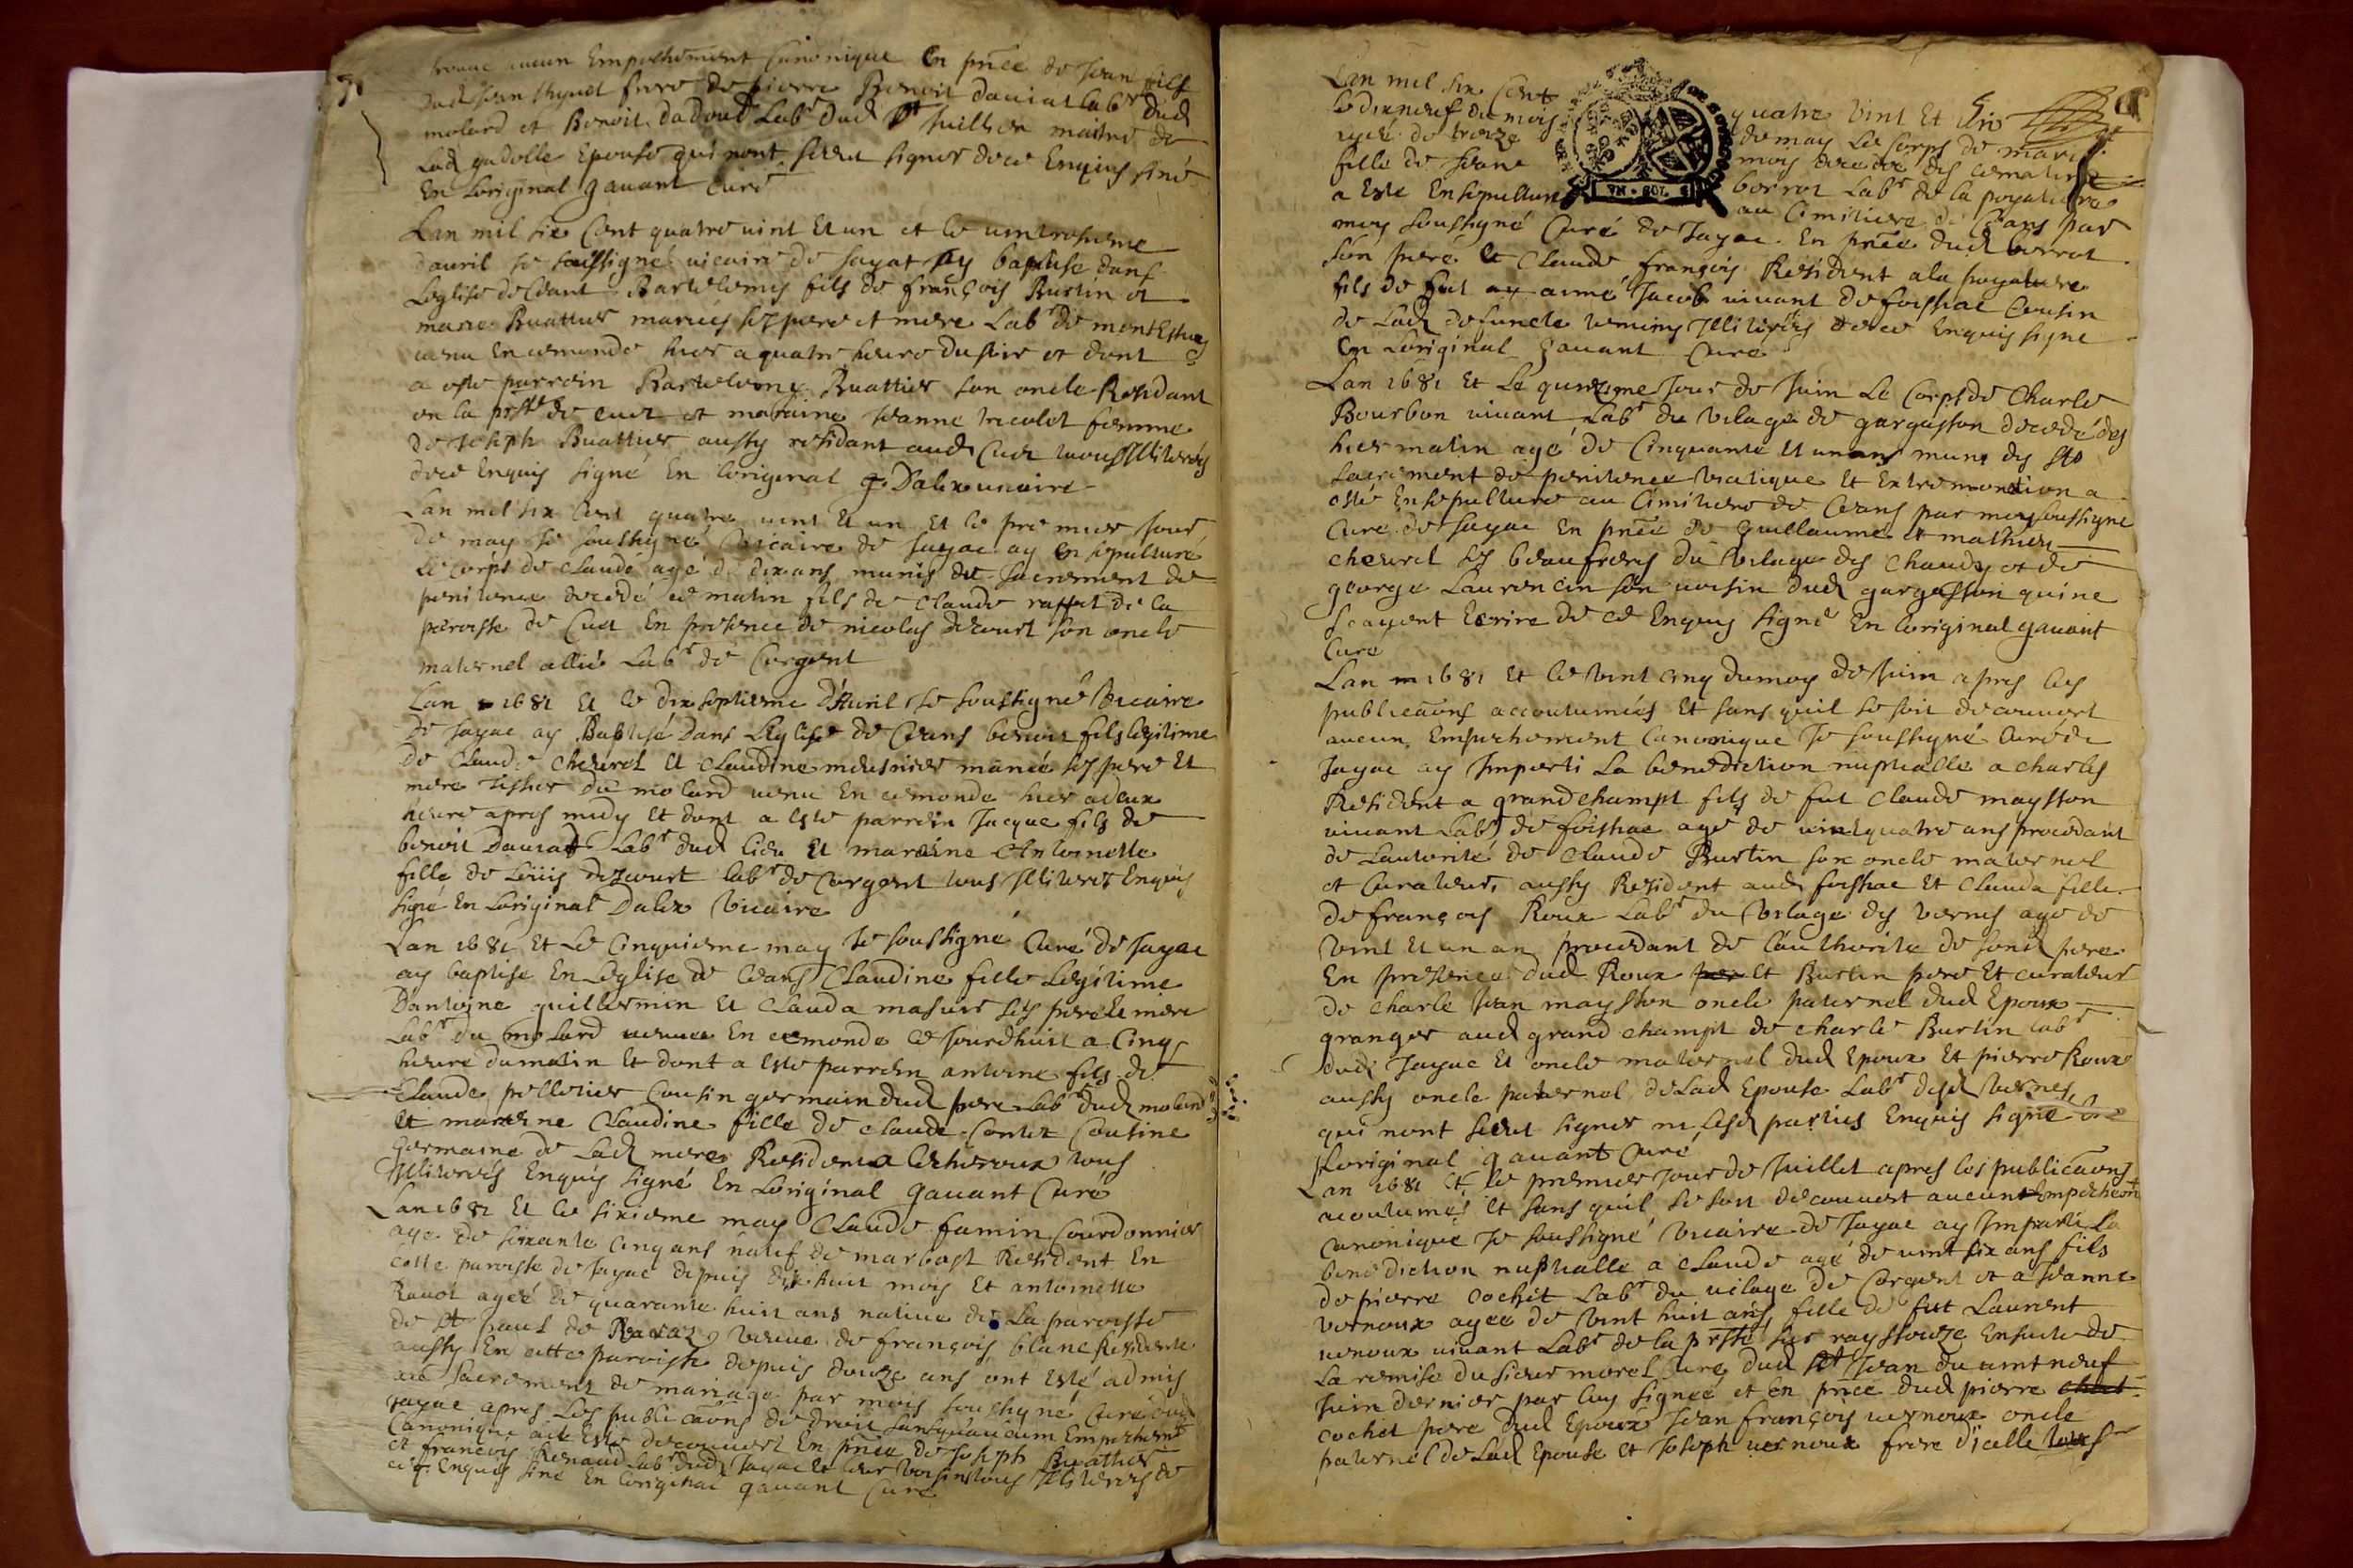 trouué aucun Empechement Canonique En pñce de Jean fils
dud Jean frere de pierre Benoit dauiat labr dud
molard et Benoit dadoud Labr dud St Jullien maitre de
Lad gadolle Epouse qui nont sceu signer dece Enquis siné
En Loriginal gauant curé
Lan mil six Cent quatre uint et un et le uintroisieme
dauril Je soussigné uicaire de Jayat ay baptise dans
Leglise de Ceant Bartelemy fils de françois Burtin et
marie Buattier mariés ses pere et mere Labr de
uenu En cemonde hier a quatre heure dusoir et dont
a este parrein Bartelemy Buattier son oncle Residant
en la prsse de cuet et maraine Jeanne tricolet femme
de Joseph Buattier aussy residant aud Cuet tous Illiterés
dece Enquis signé En Loriginal Dalex uicaire
Lan mil six Cent quatre uint et un et le premier Jour
de may Je soussigné Vicaire de Jayac ay ensepulturé
Le corps de Claude agé de dix ans munis du sacrement de
penitence decedé ce matin fils de Claude raffet de la
paroisse de Cuet En presence de nicolas decourt son oncle
maternel allié Labr de Corgent
Lan 1681 et le dix septieme d'Auril Je soussigné Vicaire
de Jayac ay Babtisé Dans Leglise de Ceans benoit fils legitime
de Claude cheurel et Claudine meusnier mariés ses pere et
mere tissier du molard uenu En cemonde hier adeux
heure apres midy et dont a este parrein Jacque fils de
benoit Dauiad Labr dud lieu et maraine Antoinette
fille de Loüis dezcourt labr de Corgent tous Illiteres Enquis
signé En Loriginal Dalex Vicaire
Lan 1681 et Le Cinquieme may Je soussigné Curé de Jayac
ay baptise En Leglise de Ceans Claudine fille Legitime
Dantoine guillermin et Clauda masuir ses pere et mere
Labr du molard uenue En cemonde Ce Jourdhuit a Cinq
heure dumatin et dont a este parrein antoine fils de
Claude pelletier Cousin germain dud pere Labr dud molard
et mareine Claudine fille de Claude Contet Cousine
Germaine de Lad mere Residente tous
Illiterés Enquis signé En Loriginal gauant Curé
Lan 1681 et le sixieme may Claude famin Courdonnier
agé de soixante cinq ans natif de marbost Resident En
cette paroisse de Jayac depuis dix huit mois et antoinette
Rauot ageé de quarante huit ans natiue de La paroisse
de St paul de Rauaz veuue de françois blanc Residente
aussy En cette paroisse depuis douze ans ont esté admis
au sacrement de mariage par moy soussigné Curé dud
Jayac apres Les publicaõns de droit sans quaucum Empechemt
Canonique aie este decouuert En pñce de Joseph Buattier
et francois Renaud Labr dud Jayac et leur voisin tous Illiterés de
ce Enquis siné En Loriginal gauant Curé
Lan mil six Cent quatre vint et Un
le dixneuf du mois de may Le Corps de marie
agée de treize mois decedée des cematin
fille de Jean berrot Labr de la poyatiere
a Este Ensepulturé au Cimitiere de Ceans par
moy soussigné Curé de Jayac En pñce dud berrot
son pere et Claude françois Resident a la poyatiere
fils de fut aymé Jacob uiuant de foissiac Cousin
de Lad defuncte temoins Illiterés dece Enquis signe
En Loriginal gauant Curé
Lan 1681 et Le quinzieme Jour de Juin Le Corps de Charle
Bourbon uiuant Labr du vilage de gargasson decedé des
hier matin agé de Cinquante et un ans muni des Sts
sacrement de penitence viatique et Extremontion a
esté Ensepulturé au Cimitiere de Ceans par moy soussigne
Curé de Jayac En pñce de guillaume et mathieu
cheurel ses beaufreres du vilage des Chaudy et de
george Laurencin son uoisin dud gargasson qui ne
scauent Ecrire de ce Enquis signé En Loriginal gauant
Curé
Lan 1681 et le vint cinq dumoy de Juin apres les
publicaõns accoutumées et sans quil se soit decouuert
aucun Empechement Canonique Je soussigné Curé de
Jayac ay Imparti La benediction nuptialle a charles
Resident a grandchampt fils de fut Claude maysson
uiuant Labr de foissiac agé de uint quatre ans procedant
de Lautorité de Claude Burtin son oncle maternel
et Curateur aussy Resident aud foissiac et Clauda fille
de françois Roux Labr du Vilage des vernes agé de
vint et un an procedant de Lauthorité de sond pere
En presence dud Roux et Burtin pere et curateur
de charle Jean maysson oncle paternel dud Epoux
granger aud grand champt de charle Burtin labr
dud Jayac et oncle maternel dud Epoux et pierre Roux
aussy oncle paternel de Lad Epouse Labr desd vernes
qui nont sceu signer ni lesd parties Enquis signé en
Loriginal gauant Curé
Lan 1681 et le premier Jour de Juillet apres les publicaõns
acoutumés et sans quil se soit decouuert aucun Empechemt
Canonique Je soussigné Vicaire de Jayac ay Imparti La
benediction nuptialle a Claude agé de uint six ans fils
de pierre Cochet Labr du uilage de Corgent et a Jeanne
vernoux agee de vint huit ans fille de fut Laurent
uernoux uiuant Labr de la prsse sur rayssouze Ensuite de
La remise du sieur morel Curé dud St Jean du uint neuf
Juin dernier par luy signeé et en pñce dud pierre
cochet pere dud Epoux Jean françois uernoux oncle
paternel de Lad Epouse et Joseph uernoux frere d'icelle tous